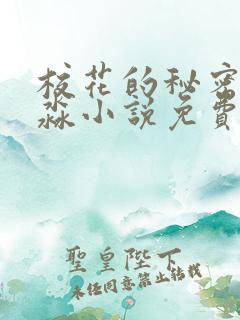 校花的秘密
淼小说免費
聖皇陛下
未经同意禁止转载